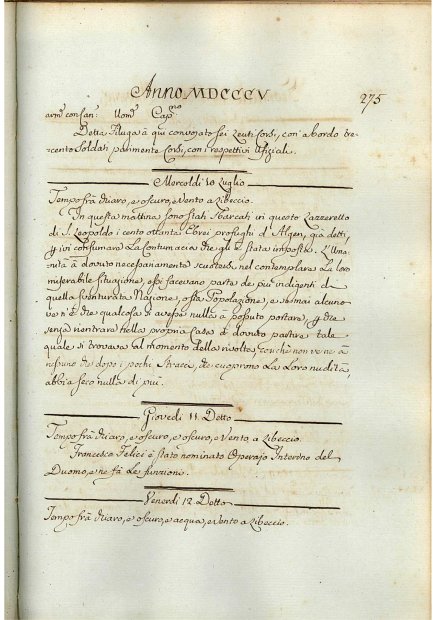 Anno MDCCCV
275
arm.º con Can: Uom.ⁱ Cap.ⁿᵒ
Detta Filuga à qui convojato sei Leuti Corsi, con a bordo tre-
cento Soldati parimente Corsi, con respettivi Ufiziali.
Mercoldì 10 Luglio
Tempo frà chiaro, e oscuro, e Vento a Libeccio.
In questa mattina sono stati sbarcati in questo Lazzeretto
di S. Leopoldo i cento ottanta Ebrei profughi d'Algeri, già detti,
p ivi consumare La Contumacia che gli è stata imposta. L'Uma-
nità à dovuto necessariamente scuotersi nel contemplare La loro
miserabile situazione, essi facevano parte de più indigenti di
quella sventurata Nazione, ossia Popolazione, e se mai alcuno
ve n'è che qualcosa si avesse nulla à possuto portare, p che
senza rientrare nella propria Casa è dovuto partire tale
quale si trovava al momento della rivolta, cosichè non ve ne à
nessuno che dopo i pochi Stracci, che cuoprono La Loro nudità,
abbia seco nulla di più.
Giovedì 11. Detto
Tempo frà chiaro, e oscuro, e oscuro, e Vento, a Libeccio.
Francesco Felici è stato nominato Operajo Interino del
Duomo, e ne fà Le funzioni.
Venerdì 12. Detto
Tempo frà chiaro, e oscuro, e acqua, e Vento a Libeccio.